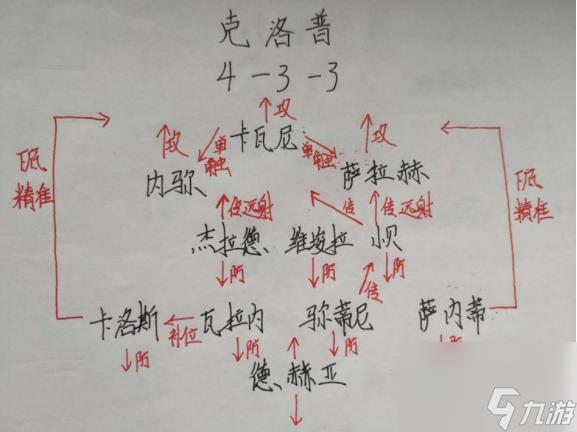 克洛普
4-3-3
攻
卡瓦尼
攻 单触 单触 攻
内弥 萨拉赫
下底精准 下底精准
传远射 传 传远射
杰拉德 维埃拉 小贝
防 防 防
传
卡洛斯 补位 瓦拉内 弥蒂尼 萨内蒂
防 防 防 防
德赫亚
九游